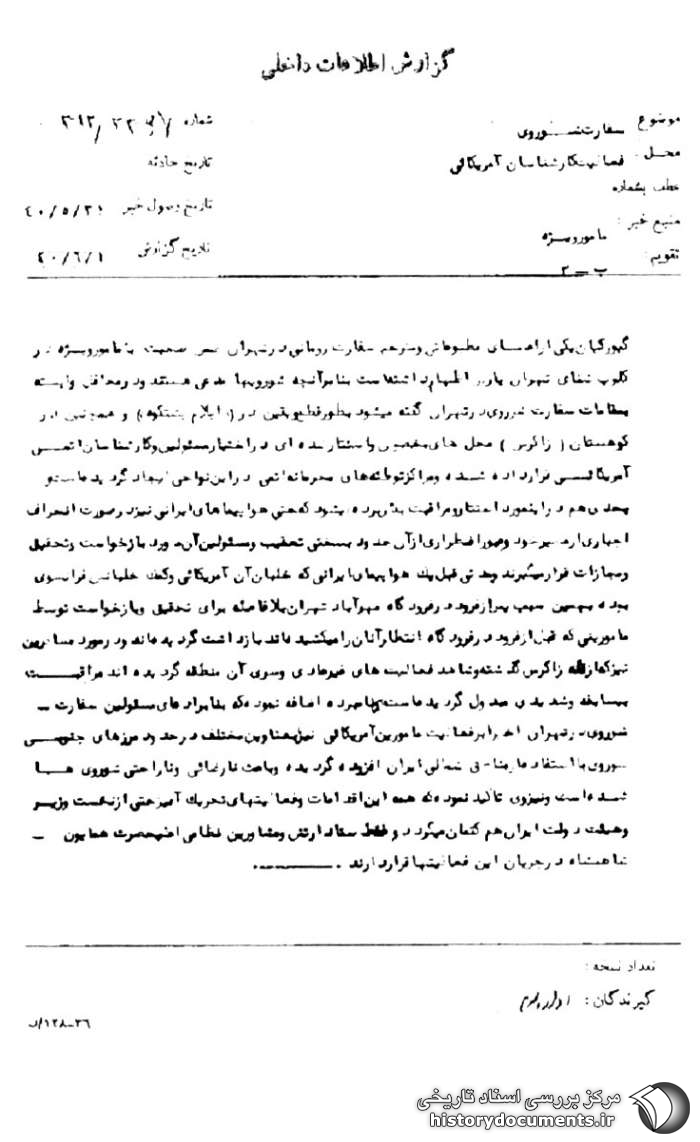 گزارش اطلاعات داخلی
موضوع سفارت شوروی
شماره
محل: فعالیت کارشناسان آمریکائی
تاریخ حادثه
عطف بشماره
تاریخ وصول خبر ۴۰/۵/۳۱
منبع خبر: مامور ویژه
تاریخ گزارش ۴۰/۶/۱
تقویم: ب-۲
یکی از اعضای مطبوعاتی ومترجم سفارت رومانی در تهران ضمن صحبت با مامور ویژه در
کلوپ شفای تهران اظهار داشته است بنابر آنچه شورویها مدعی هستند و در محافل وابسته
بمقامات سفارت شوروی در تهران گفته میشود بطور قطع و یقین در ( ایلام پشتکوه ) و همچنین در
کوهستان ( زاگرس ) محل های مخصوص واستتار شده ای در اختیار مسئولین وکارشناسان اتمی
آمریکائی قرار داده شده ومراکز توطئه های محرمانه اتمی در این نواحی ایجاد گردیده است و
بحدی هم در اینمورد استتار ومراقبت بکار برده میشود که حتی هواپیماهای ایرانی نیز در صورت انحراف
اجباری از مسیر خود وعبور اضطراری از آن حدود بسختی تعقیب ومسئولین آن مورد بازخواست وتحقیق
ومجازات قرار میگیرند ومدتی قبل یک هواپیمای ایرانی که خلبان آن آمریکائی وکمک خلبانش فرانسوی
بوده بهمین سبب پس از فرود در فرودگاه مهرآباد تهران بلافاصله برای تحقیق وبازخواست توسط
مامورینی که قبل از فرود در فرودگاه انتظار آنان را میکشیدند بازداشت گردیده اند و در مورد مسافرین
نیز که از زاگرس گذشته وشاهد فعالیت های غیرعادی وسری آن منطقه گردیده اند مراقبت
بیسابقه وشدیدی مبذول گردیده است نامبرده اضافه نموده که بنابر ادعای مسئولین سفارت -
شوروی در تهران اخیرا بر فعالیت مامورین آمریکائی نیز بعناوین مختلف در حدود مرزهای جنوبی
شوروی با استفاده از مناطق شمالی ایران افزوده گردیده وباعث نارضائی وناراحتی شوروی ها
شده است ونیز وی تاکید نموده که همه این اقدامات وفعالیتهای تحریک آمیز حتی از نخست وزیر
وهیئت دولت ایران هم کتمان میگردد و فقط ستاد ارتش ومشاورین نظامی اعلیحضرت همایون -
شاهنشاه در جریان این فعالیتها قرار دارند .
تعداد نسخه :
گیرندگان :
۱۲۸-۳۶/د
مرکز بررسی اسناد تاریخی
historydocuments.ir